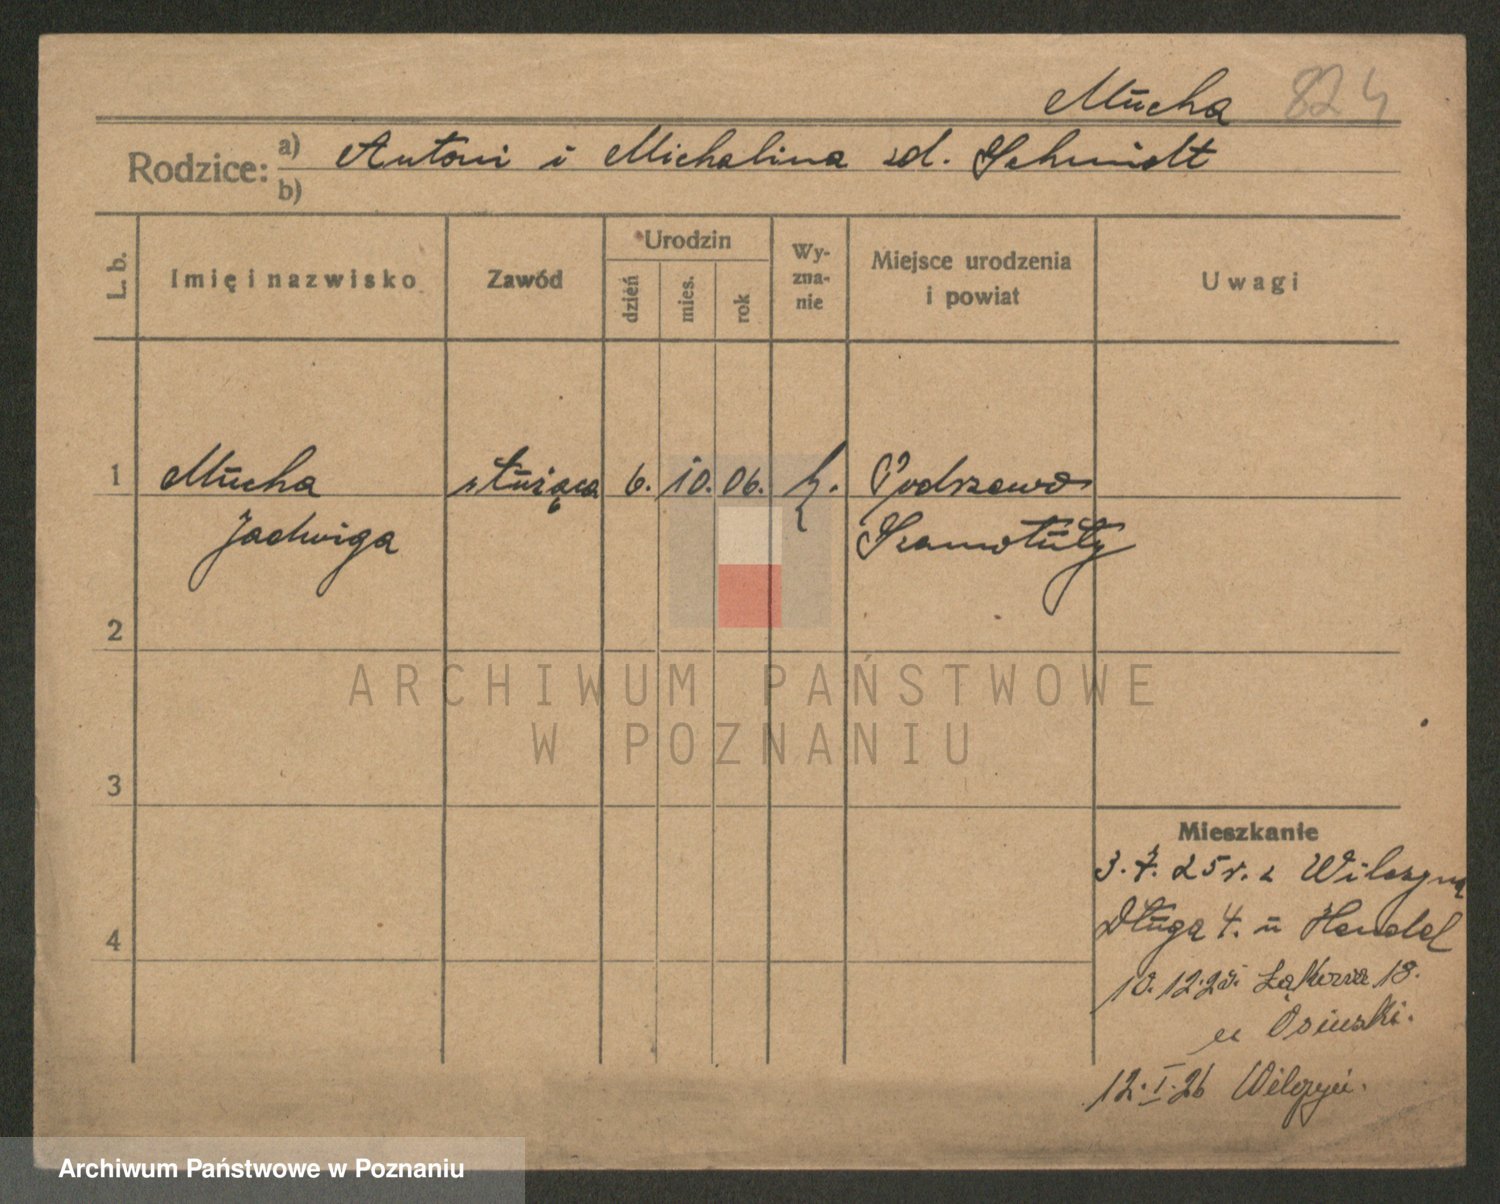 Mucha 824
Rodzice: a) Antoni i Michalina zd. Schmidt
b)
L. b.
Imię i nazwisko
Zawód
Urodzin
dzień
mies.
rok
Wy-
zna-
nie
Miejsce urodzenia
i powiat
Uwagi
1 Mucha służąca 6. 10. 06. k. Podrzewo
Jadwiga Szamotuły
2
3
4
Mieszkanie
3. 7. 25 r. z Wilczyna
Długa 4. u Hendel
10. 12. 25. Łąkowa 18.
u Osiński.
12. I. 26 Wilczyn.
ARCHIWUM PAŃSTWOWE
W POZNANIU
Archiwum Państwowe w Poznaniu